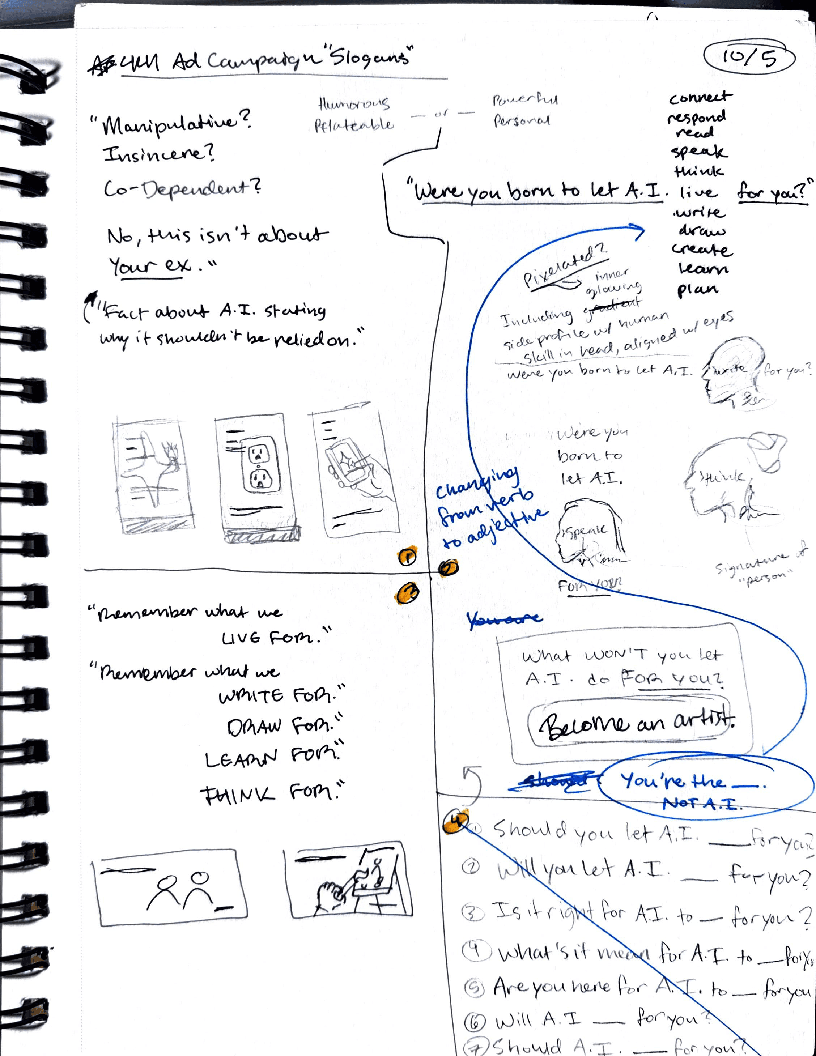 Ad Campaign "Slogans"
10/5
"Manipulative?
Insincere?
Co-Dependent?
No, this isn't about
Your ex."
"Fact about A.I. stating
why it shouldn't be relied on."
Humorous
Relateable
— or —
Powerful
Personal
connect
respond
read
speak
think
"Were you born to let A.I. live for you?"
write
draw
create
learn
plan
Pixelated?
inner
glowing
gradient
Including
side profile w/ human
skill in head, aligned w/ eyes
Were you born to let A.I. write for you?
Were you
born to
let A.I.
speak
FOR YOU?
think
Signature of
"person"
Changing
from verb
to adjective
1
2
3
"Remember what we
LIVE FOR."
"Remember what we
WRITE FOR."
DRAW FOR."
LEARN FOR."
THINK FOR."
You are
What WON'T you let
A.I. do FOR YOU?
Become an artist.
should
You're the __.
NOT A.I.
4
① Should you let A.I. __ for you?
② Will you let A.I. __ for you?
③ Is it right for A.I. to __ for you?
④ What's it mean for A.I. to __ for you
⑤ Are you here for A.I. to __ for you
⑥ Will A.I __ for you?
⑦ Should A.I. __ for you?